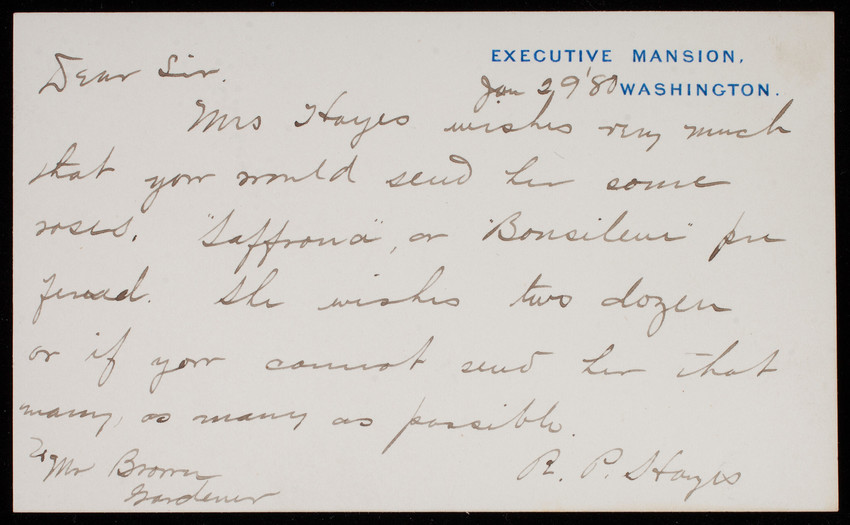 EXECUTIVE MANSION,
WASHINGTON.
Jan 29 '80
Dear Sir.
Mrs Hayes wishes very much
that you would send her some
roses, "Saffrona", or "Bonsileur" pre
ferred. She wishes two dozen
or if you cannot send her that
many, as many as possible.
R. P. Hayes
To Mr Brown
Gardener